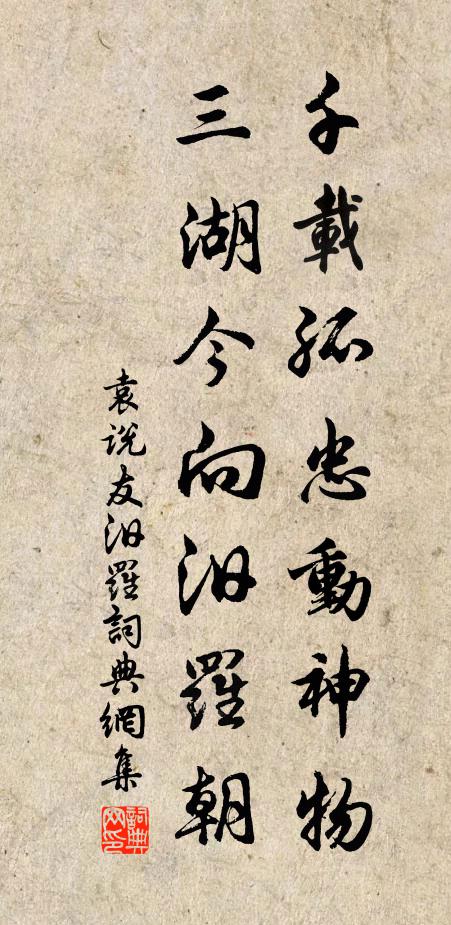 千載孤忠動神物
三湖今向汨羅朝
袁说友汨羅詞典網集
詞典网印